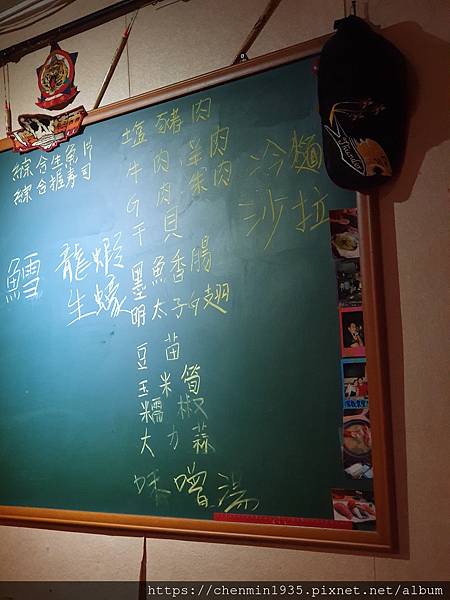 綜合生魚片
綜合握壽司
鱈
龍蝦
生蠔
塩豬肉
牛肉 羊肉
G肉 柴肉
干貝
墨魚香腸
明太子G翅
豆苗
玉米筍
糯米椒
大力蒜
味噌湯
冷麵
沙拉
https://chenmin1935.pixnet.net/album